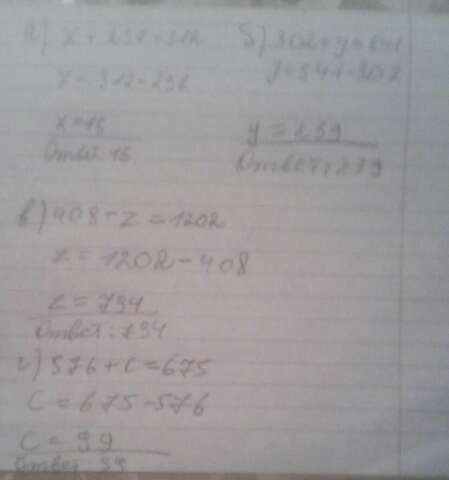 а) x + 297 = 312
x = 312 - 297
x = 15
Ответ: 15
б) 302 + y = 541
y = 541 - 302
y = 239
Ответ: 239
в) 408 + z = 1202
z = 1202 - 408
z = 794
Ответ: 794
г) 576 + c = 675
c = 675 - 576
c = 99
Ответ: 99